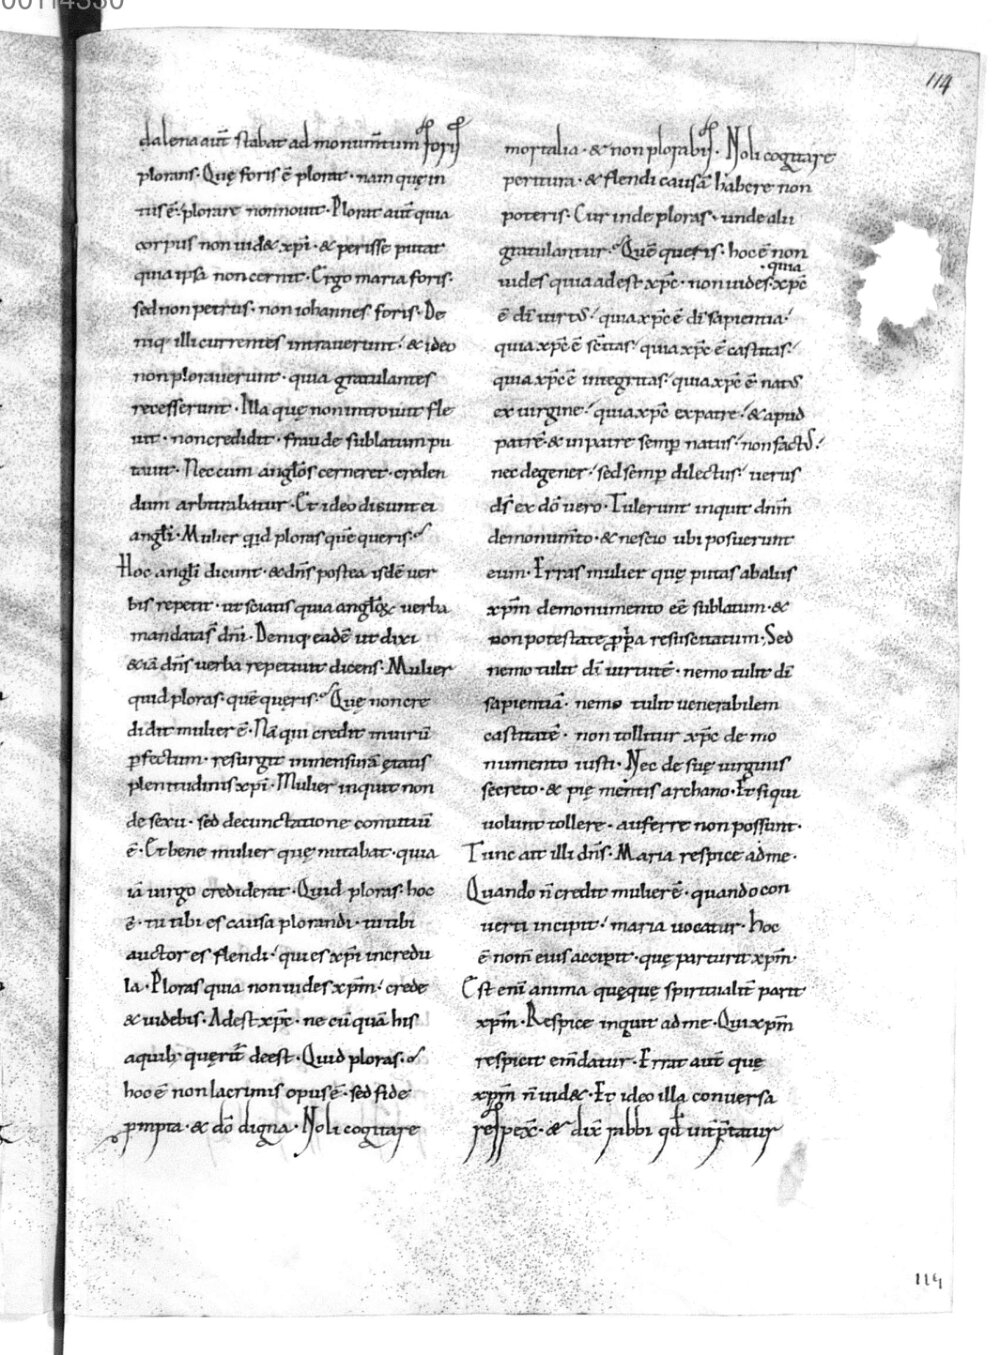 00114330
114
dalena aut̄ stabat ad monum̄tum foris
plorans· Quę foris ē plorat· nam quę in
tus ē· plorare non nouit· Plorat aut̄ quia
corpus non uidet xp̄i· & perisse putat
quia ipsa non cernit· Ergo maria foris·
sed non petrus· non iohannes foris· De
niq· illi currentes intrauerunt· & ideo
non plorauerunt· quia gratulantes
recesserunt· Illa quę non introiuit fle
uit· non credidit· fraude sublatum pu
tauit· Nec cum angl̄os cerneret· creden
dum arbitrabatur· Et ideo dicunt ei
angl̄i· Mulier qid ploras quē queris·
Hoc angl̄i dicunt· & dn̄s postea isdē uer
bis repetit· ut sciatis quia angl̄oꝝ uerba
mandata s̄ dn̄i· Deniq eadē ut dixi
& iā dn̄s uerba repetiuit dicens· Mulier
quid ploras· quē quęris· Quę non cre
didit mulier ē· Nā qui credit in uirū
ꝑfectum· resurgit in mensurā ętatis
plenitudinis xp̄i· Mulier inquit non
de sexu· sed de cunctatione conuitiū
ē· Et bene mulier quę nutabat· quia
iā uirgo crediderat· Quid ploras· hoc
ē· tu tibi es causa plorandi· tu tibi
auctor es flendi· qui es xp̄i incredu
la· Ploras quia non uides xp̄m· crede
& uidebis· Adest xp̄c· ne cū quā his
a quib· quęrit̄ deest· Quid ploras·
hoc ē non lacrimis opus ē· sed fide
prompta· & dō digna· Noli cogitare
mortalia· & non plorabis· Noli cogitare
peritura· & flendi causā habere non
poteris· Cur inde ploras· unde alii
gratulantur· Quē queris· hoc ē non
·quia
uides quia adest xp̄c· non uides· xp̄c
ē dī uirtꝰ· quia xp̄c ē dī sapientia·
quia xp̄c ē sc̄itas· quia xp̄c ē castitas·
quia xp̄c ē integritas· quia xp̄c ē natꝰ
ex uirgine· quia xp̄c ex patre· & apud
patrē & in patre semꝑ natus· non factꝰ·
nec degener· sed semꝑ dilectus· uerus
ds̄ ex dō uero· Tulerunt inquit dn̄m
de monum̄to· & nescio ubi posuerunt
eum· Erras mulier quę putas ab aliis
xp̄m de monumento eē sublatum· &
non potestate ꝓpria resuscitatum· Sed
nemo tulit dī uirtutē· nemo tulit dī
sapientiā· nemo tulit uenerabilem
castitatē· non tollitur xp̄c de mo
numento iusti· Nec de suę uirginis
secreto· & pię mentis archano· Et si qui
uolunt tollere· auferre non possunt·
Tunc ait illi dn̄s· Maria respice ad me·
Quando n̄ credit mulier ē· quando con
uerti incipit· maria uocatur· hoc
ē nom̄ eius accipit· quę parturit xp̄m·
Est eni anima quęquę spiritualit̄ parit
xp̄m· Respice inquit ad me· Qui xp̄m
respicit em̄datur· Errat aut̄ quę
xp̄m n̄ uidet· Et ideo illa conuersa
respex̄· & dix̄ rabbi qđ int̄ꝑtatur
114